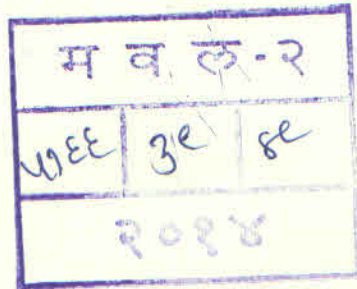 म व ल-२
५१६६ ३९ ४९
२०१४